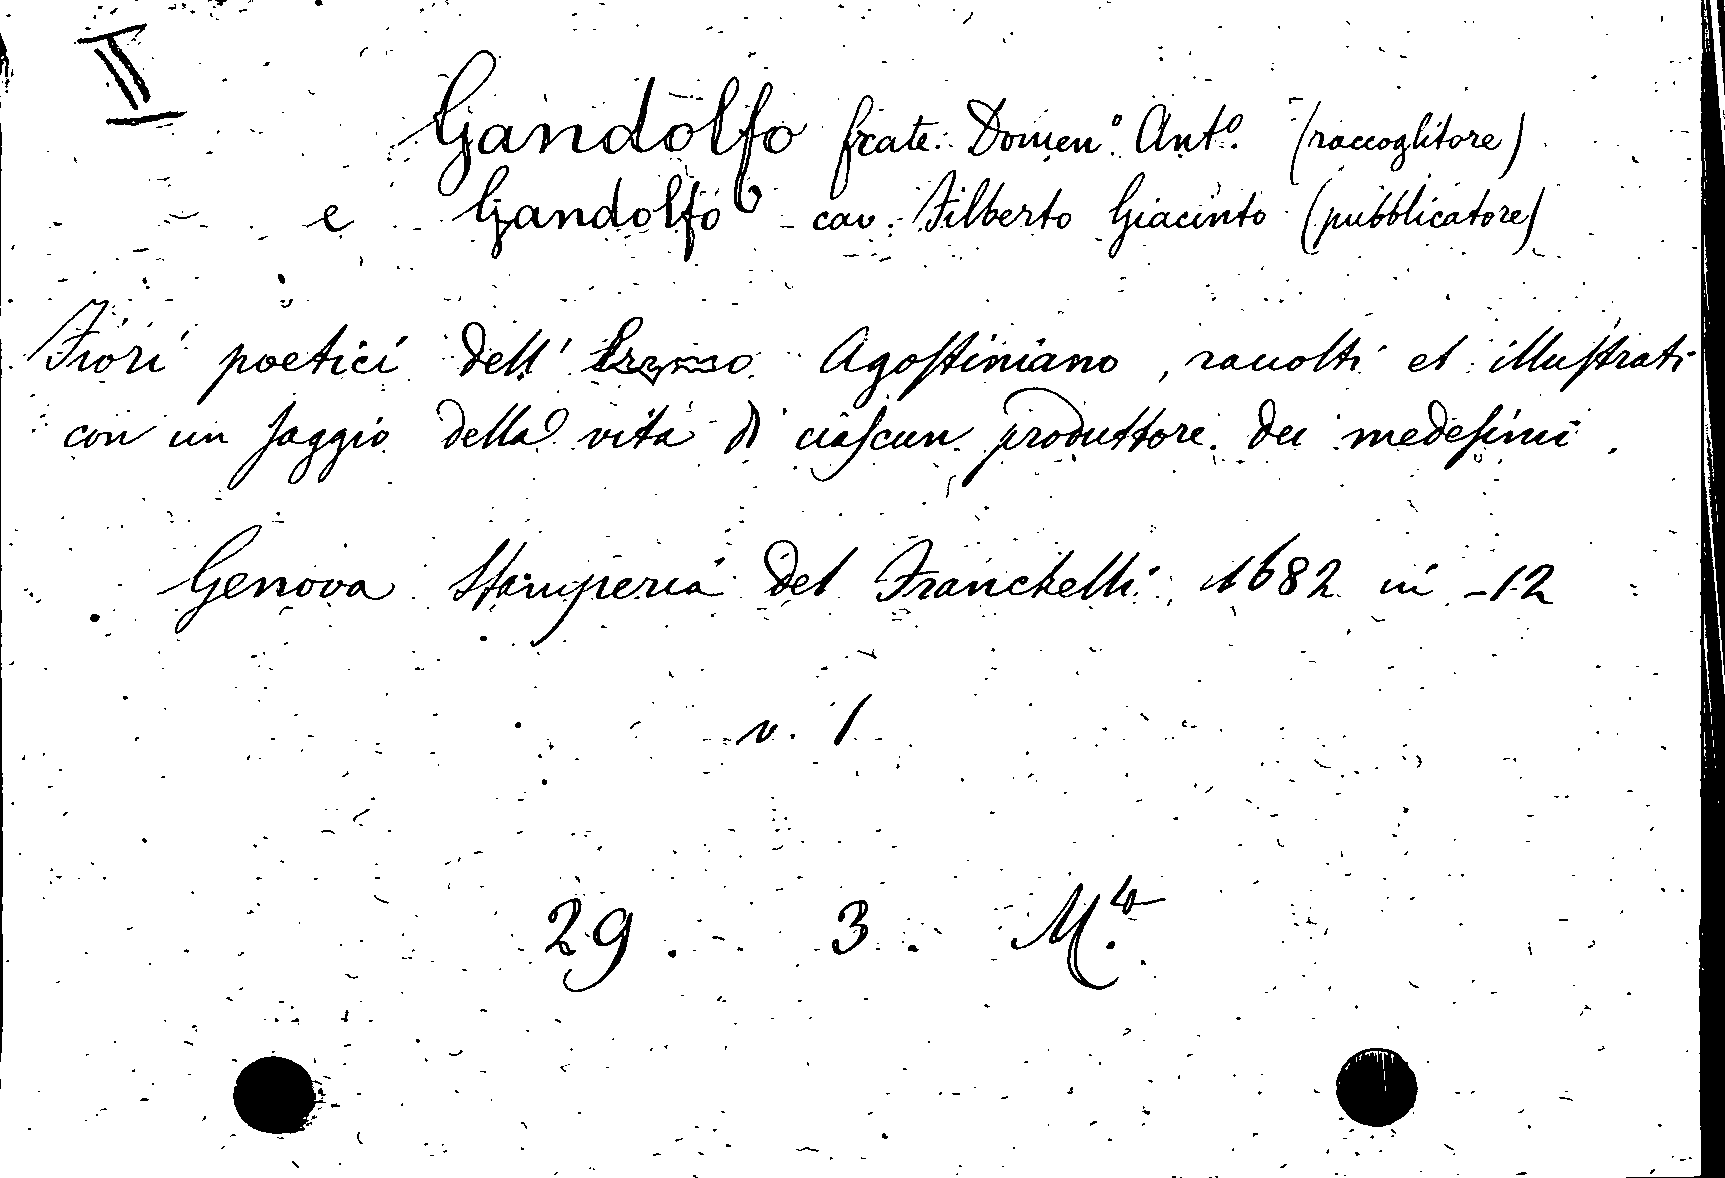 II
Gandolfo frate Domen° Ant°. (raccoglitore)
e Gandolfo cav. Filberto Giacinto (pubblicatore)
Fiori poetici dell' Eremo Agostiniano, racolti et illustrati
con un saggio della vita di ciascun produttore dei medesimi.
Genova Stamperia del Franchelli 1682 in -12
v. 1
29. 3. M.